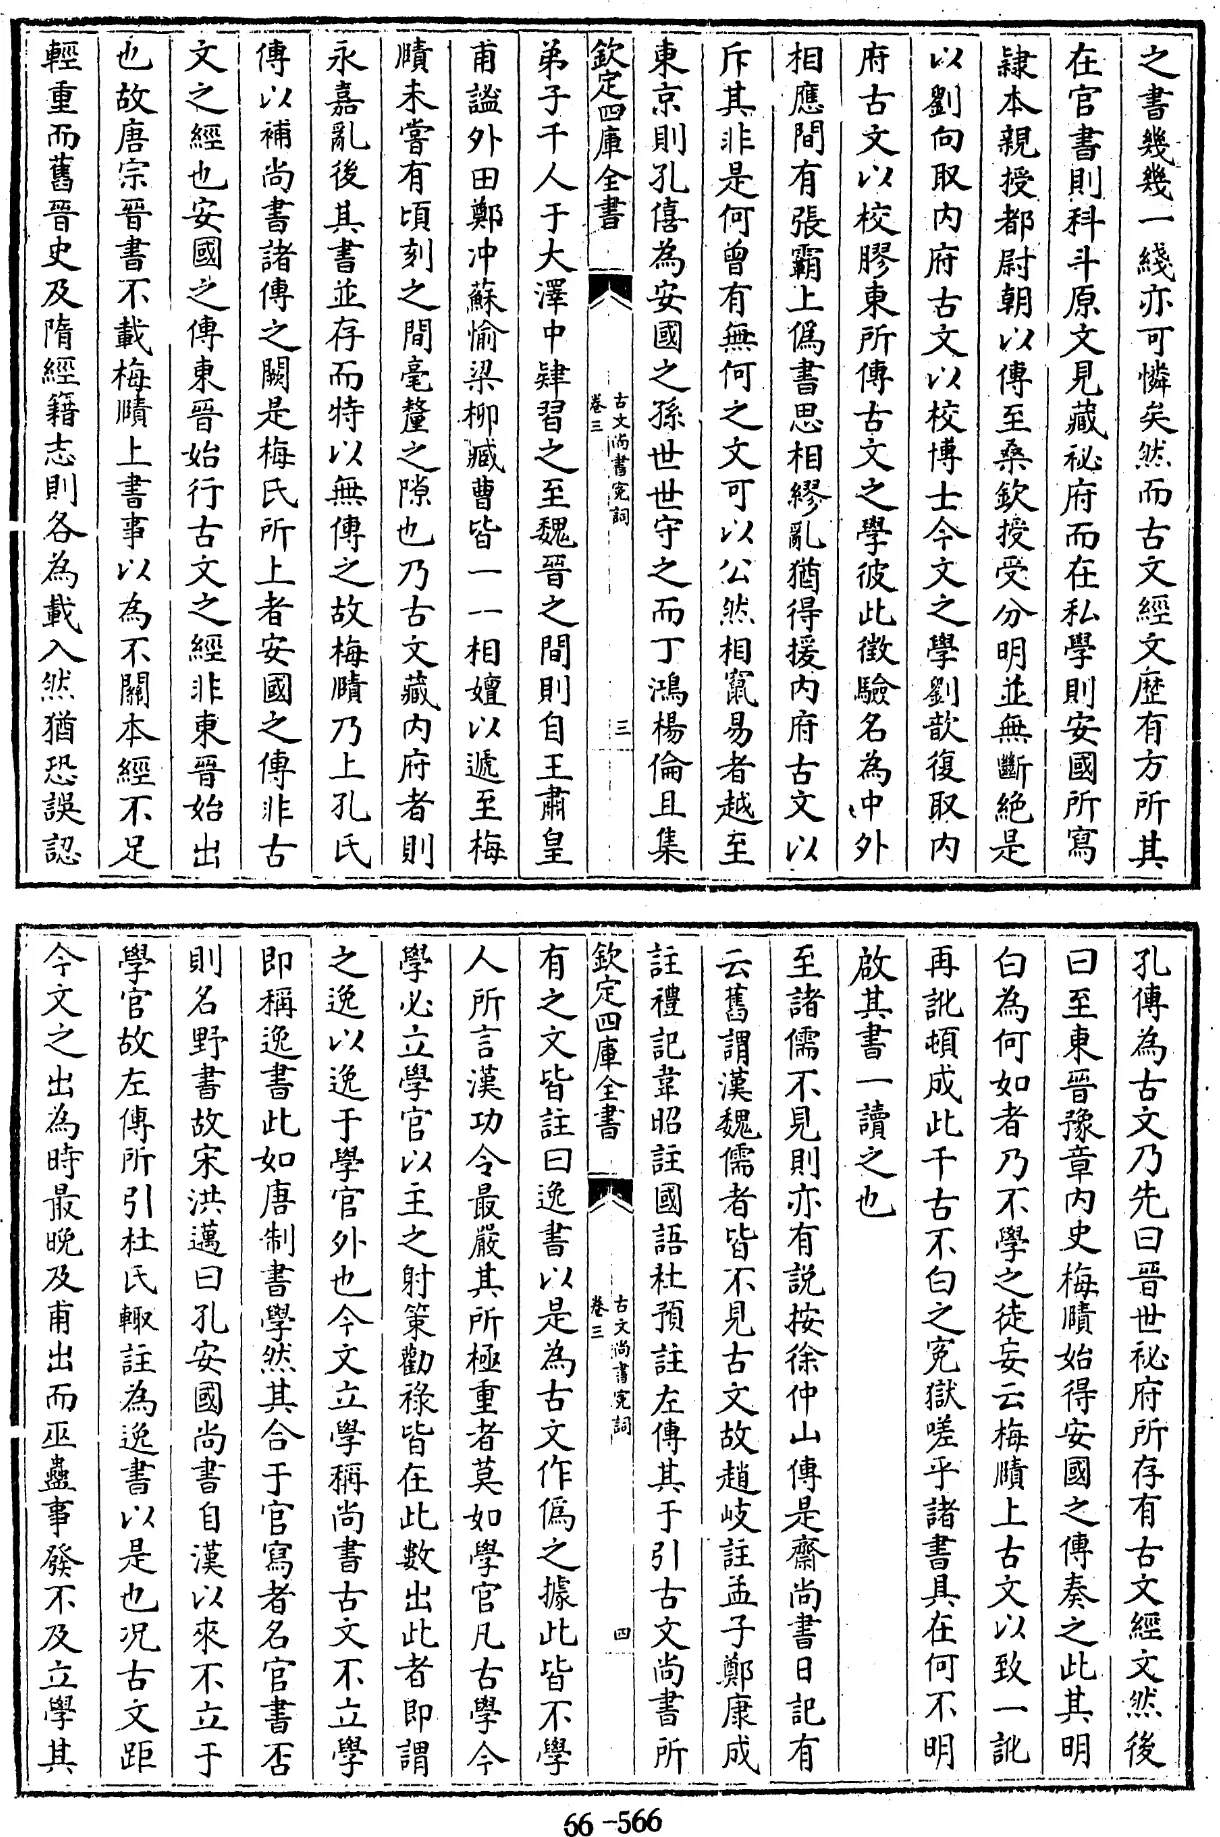 之書幾幾一綫亦可憐矣然而古文經文歷有方所其
在官書則科斗原文見藏祕府而在私學則安國所寫
隷本親授都尉朝以傳至桑欽授受分明並無斷絶是
以劉向取内府古文以校博士今文之學劉歆復取内
府古文以校膠東所傳古文之學彼此徵驗名為中外
相應間有張霸上偽書思相繆亂猶得援内府古文以
斥其非是何曾有無何之文可以公然相竄易者越至
東京則孔僖為安國之孫世世守之而丁鴻楊倫且集
欽定四庫全書
古文尚書寃詞
卷三
三
弟子千人于大澤中肄習之至魏晉之間則自王肅皇
甫謐外田鄭冲蘇愉梁栁臧曹皆一一相嬗以遞至梅
賾未嘗有頃刻之間毫釐之隙也乃古文藏内府者則
永嘉亂後其書並存而特以無傳之故梅賾乃上孔氏
傳以補尚書諸傳之闕是梅氏所上者安國之傳非古
文之經也安國之傳東晉始行古文之經非東晉始出
也故唐宗晉書不載梅賾上書事以為不關本經不足
輕重而舊晉史及隋經籍志則各為載入然猶恐誤認
孔傳為古文乃先曰晉世祕府所存有古文經文然後
曰至東晉豫章内史梅賾始得安國之傳奏之此其明
白為何如者乃不學之徒妄云梅賾上古文以致一訛
再訛頓成此千古不白之寃獄嗟乎諸書具在何不明
啟其書一讀之也
至諸儒不見則亦有説按徐仲山傳是齋尚書日記有
云舊謂漢魏儒者皆不見古文故趙岐註孟子鄭康成
註禮記韋昭註國語杜預註左傳其于引古文尚書所
欽定四庫全書
古文尚書寃詞
卷三
四
有之文皆註曰逸書以是為古文作偽之據此皆不學
人所言漢功令最嚴其所極重者莫如學官凡古學今
學必立學官以主之射策勸祿皆在此數出此者即謂
之逸以逸于學官外也今文立學稱尚書古文不立學
即稱逸書此如唐制書學然其合于官寫者名官書否
則名野書故宋洪邁曰孔安國尚書自漢以來不立于
學官故左傳所引杜氏輙註為逸書以是也况古文距
今文之出為時最晚及甫出而巫蠱事發不及立學其
66-566